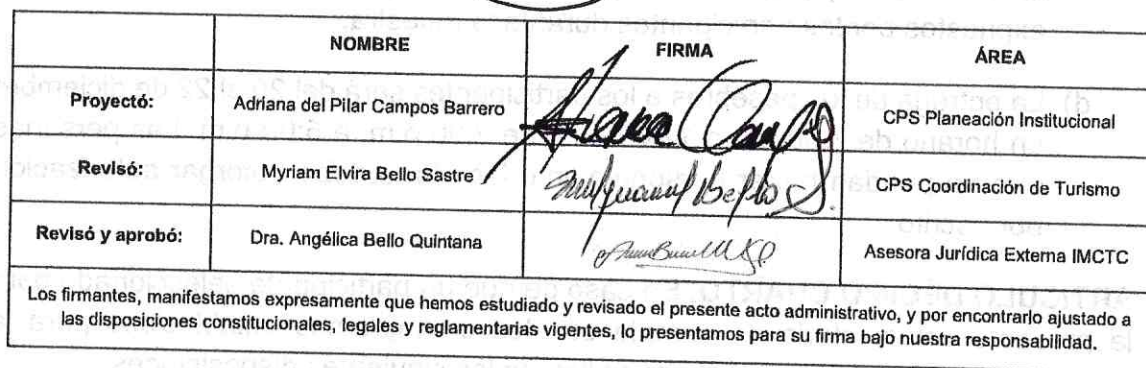 NOMBRE FIRMA ÁREA
Proyectó: Adriana del Pilar Campos Barrero CPS Planeación Institucional
Revisó: Myriam Elvira Bello Sastre CPS Coordinación de Turismo
Revisó y aprobó: Dra. Angélica Bello Quintana Asesora Jurídica Externa IMCTC
Los firmantes, manifestamos expresamente que hemos estudiado y revisado el presente acto administrativo, y por encontrarlo ajustado a
las disposiciones constitucionales, legales y reglamentarias vigentes, lo presentamos para su firma bajo nuestra responsabilidad.